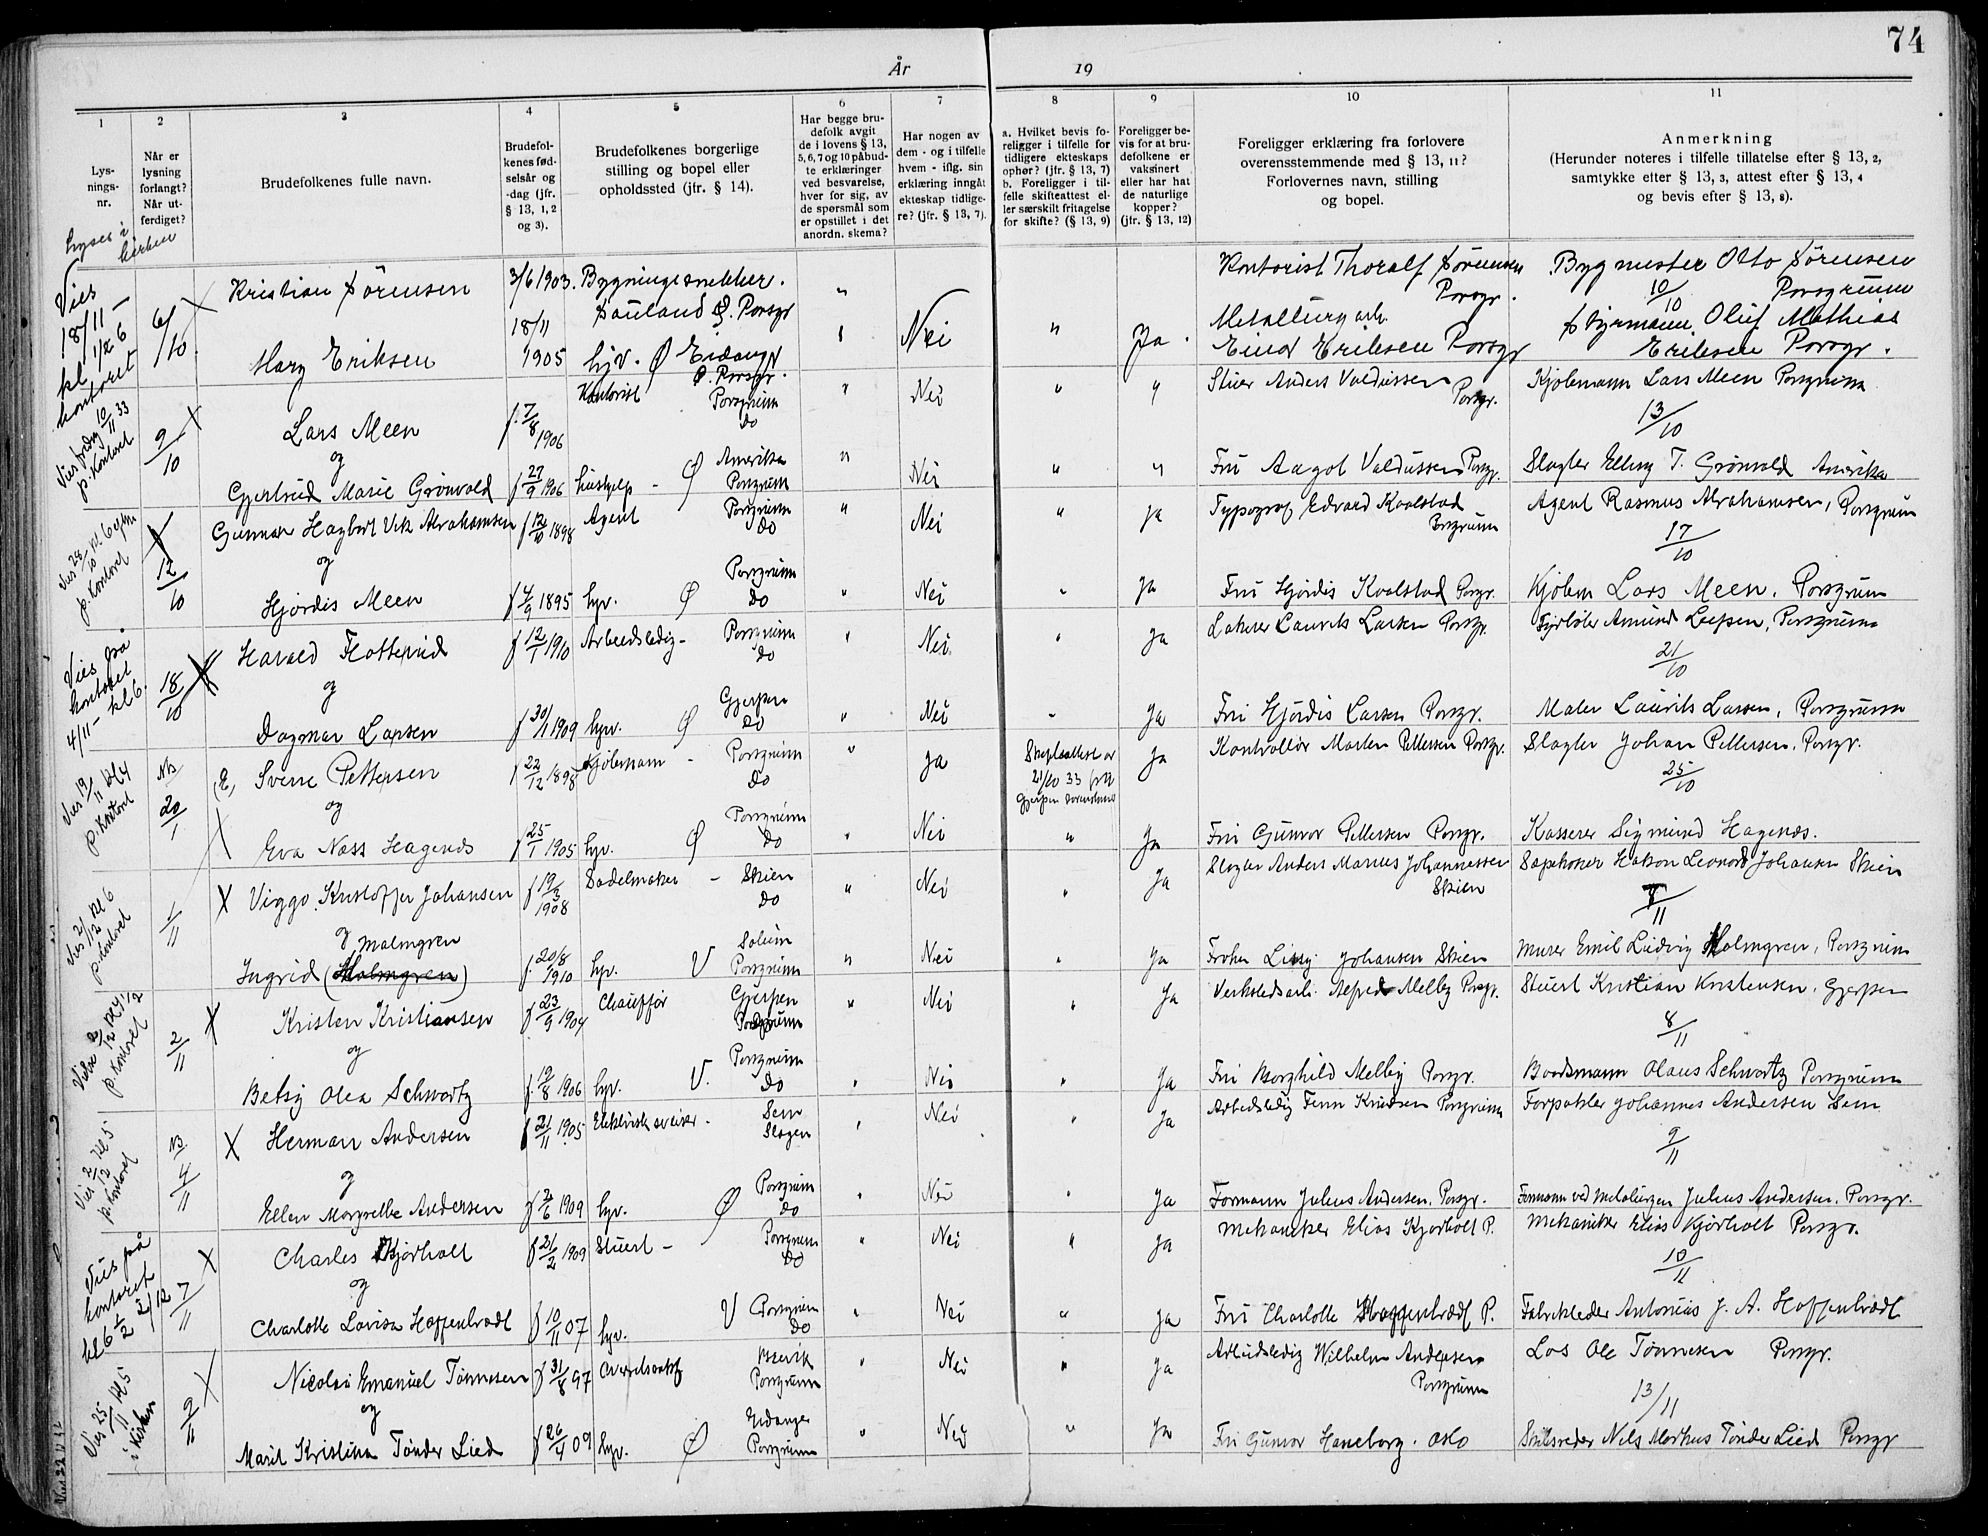 74
År 19
1 2 3 4 5 6 7 8 9 10 11
Lys-
nings-
nr.
Når er
lysning
forlangt?
Når ut-
ferdiget?
Brudefolkenes fulle navn.
Brudefol-
kenes fød-
selsår og
-dag (jfr.
§ 13, 1, 2
og 3).
Brudefolkenes borgerlige
stilling og bopel eller
opholdssted (jfr. § 14).
Har begge bru-
defolk avgit
de i lovens § 13,
5, 6, 7 og 10 påbud-
te erklæringer
ved besvarelse,
hver for sig, av
de spørsmål som
er opstillet i det
anordn. skema?
Har nogen av
dem - og i tilfelle
hvem - iflg. sin
erklæring inngåt
ekteskap tidlige-
re? (jfr. § 13, 7).
a. Hvilket bevis fo-
religger i tilfelle for
tidligere ekteskaps
ophør? (jfr. § 13, 7)
b. Foreligger i til-
felle skifteattest el-
ler særskilt fritagelse
for skifte? (§ 13, 9)
Foreligger be-
vis for at bru-
defolkene er
vaksinert
eller har hat
de naturlige
kopper?
(jfr. § 13, 12)
Foreligger erklæring fra forlovere
overensstemmende med § 13, 11?
Forlovernes navn, stilling
og bopel.
Anmerkning
(Herunder noteres i tilfelle tillatelse efter § 13, 2,
samtykke efter § 13, 3, attest efter § 13, 4
og bevis efter § 13, 8).
Lyses i
kirken
Vies
18/11 –
kl 1/2 6
kontoret
6/10
Kristian Sörensen 3/6 1903. Bygningssnekker. " Kontorist Thoralf Sörensen Bygmester Otto Sörensen
Porsgr. 10/10 Porsgrunn
Mary Eriksen 18/11 1905 hjv. Ø Eidanger " Nei " Ja. Metallurg arb. Styrmann Oluf Mathias
Ö. Porsgr. Einar Eriksen Porsgr Eriksen Porsgr.
Vies fredag 10/11 33
p. Kontoret
9/10
Lars Meen f. 7/8 1906 Kontorist Porsgrunn " Nei " " Stuer Anders Valdussen Porsgr. Kjöbmann Lars Meen Porsgrunn
do 13/10
og
Gjertrud Marie Grönvold f 27/9 1906 hushjelp - Ø Amerika " Nei " " Frü Aagot Valdussen Porsgr. Slagter Elling T. Grönvold Amerika
Porsgrunn
Vies 28/10 kl. 6 eftm
p. Kontoret
12/10
Gunnar Hagbart Vik Abrahamsen f 12/10 1898 Agent Porsgrunn " Nei " ja Typograf Edvard Kaalstad Agent Rasmus Abrahamsen, Porsgrunn
do Porsgrunn 17/10
og
Hjördis Meen f 4/9 1895 hjv. Ø Porsgrunn " Nei " ja Frü Hjördis Kaalstad Porsgr. Kjöbm Lars Meen, Porsgrunn
do
Vies på
kontoret
4/11 – kl 6.
18/10
Harald Flotterud f 12/1 1910 Arbeidsledig - Porsgrunn " Nei " ja Lakerer Laurits Larsen Porsgr. Fyrböter Amund
do 21/10
og
Dagmar Larsen f 30/1 1909 hjv. Ø Gjerpen " Nei " ja Fri Hjördis Larsen Porsgr. Maler Laurits Larsen, Porsgrunn
do
Vies 19/11 kl 4
p. Kontoret
NB
20/1
(E) Sverre Pettersen f 22/12 1898 Kjöbmann - Porsgrunn " ja Skifteattest av ja Kontrollör Marten Pettersen Porsgr. Slagter Johan Pettersen, Porsgr.
do 21/10 33 fra 25/10
og Gjerpen sorenskriver
Eva Nass Hagenæs f 25/1 1905 hjv. Ø Porsgrunn " Nei " Ja Fri Gunvor Pettersen Porsgr. Kasserer Sigmund Hagenæs.
do
Vies 2/12 kl 6
p. Kontoret
1/11
Viggo Kristoffer Johansen f 19/3 1908 Sadelmaker - Skien " Nei " Ja Slagter Anders Marius Johannessen Såpekoker Hakon Leonard Johansen Skien
do Skien 7/11
og Malmgren
Ingrid (Holmgren) f. 20/8 1910 hjv. V Solum " Nei " Ja Fröken Johansen Skien Murer Emil Ludvig Malmgren, Porsgrunn
Porsgrunn
Vies 2/12 kl 4 1/2
p. Kontoret
2/11
Kristen Kristiansen f 23/9 1904 Chauffør Gjerpen " Nei " Ja Verkstedsarb. Alfred Melby Porsgr. Stuert Kristian Kristensen, Gjerpen
Porsgrunn 8/11
og
Betsy Olea Schwartz f. 19/8 1906 hjv. V. Porsgrunn " Nei " Ja Fri Borghild Melby Porsgr. Baadsmann Olaus Schwartz Porsgrunn
do
Vies 2/12 kl 5
p. kontoret
NB
4/11
Herman Andersen f 21/11 1905 Elektrisk sveiser - Sem " Nei " Ja Arbeidsledig Finn Knudsen Porsgrunn Forpakter Johannes Andersen Sem
Slagen 9/11
og
Ellen Margrethe Andersen f 2/6 1909 hjv. Ø Porsgrunn " Nei " Ja Formann Julius Andersen, Porsgr. Formann ved Metalurgen Julius Andersen, Porsgr.
do
Vies på
kontoret
kl 6 1/2 2/12
7/11
Charles Kjörholt f 21/2 1909 Stuert - Porsgrunn " Nei " ja Mekaniker Elias Kjörholt P. Mekaniker Elias Kjörholt Porsgr.
do 10/11
og
Charlotte Lovisa Hoffenbradl f 10/11 07 hjv. V Porsgrunn " Nei " Ja Fri Charlotte Hoffenbradl P. Fabrikleder Antonius J. A. Hoffenbradl
do
Vies 25/11 kl 5
i Kirken
9/11
Nicolai Emanuel Tönnesen f 31/8 97 Brevik " Nei " Ja Arbeidsledig Wilhelm Andersen Los Ole Tönnesen Porsgr.
Porsgrunn Porsgrunn 13/11
og
Marit Kristina Tönder Lied f 26/4 09 hjv. Ø Eidanger " Nei " Ja Fri Gunvor Haneborg. Oslo Skibsreder Nils Markus Tönder Lied Porsgr
Porsgrunn